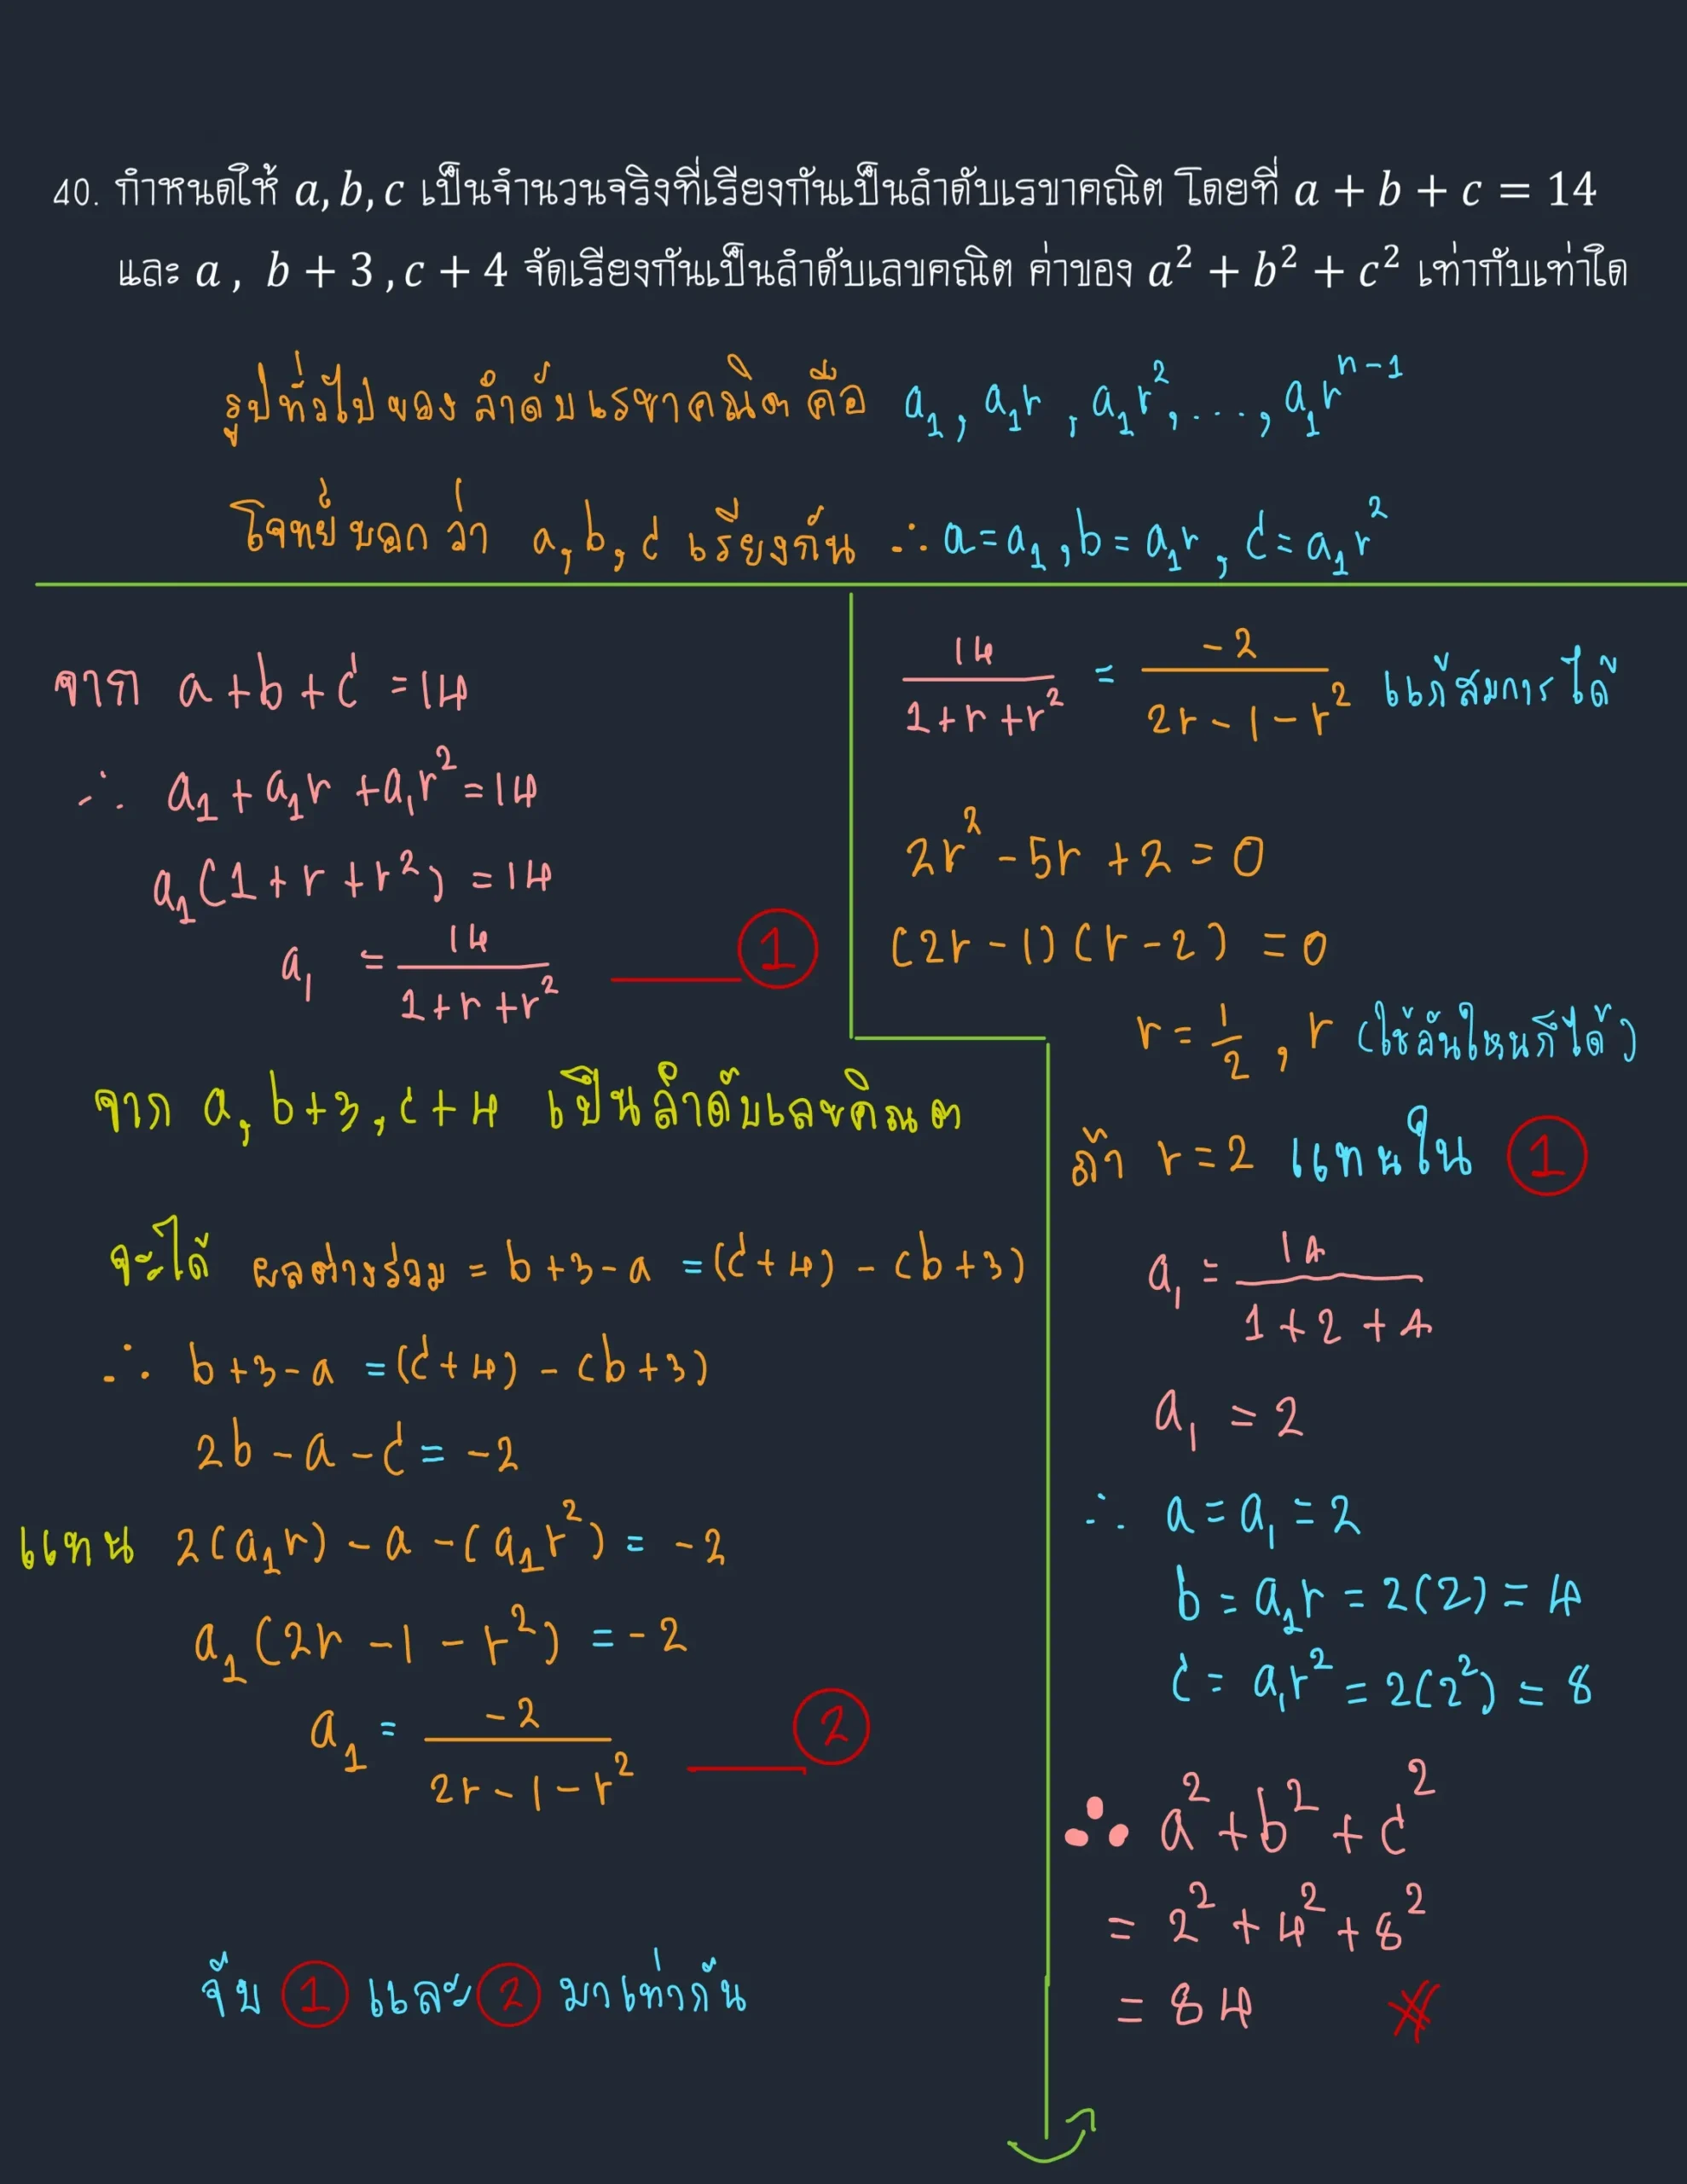 40. กำหนดให้ a, b, c เป็นจำนวนจริงที่เรียงกันเป็นลำดับเรขาคณิต โดยที่ a + b + c = 14
และ a , b + 3 , c + 4 จัดเรียงกันเป็นลำดับเลขคณิต ค่าของ a² + b² + c² เท่ากับเท่าใด
รูปทั่วไปของลำดับเรขาคณิตคือ a₁, a₁r, a₁r², ..., a₁rⁿ⁻¹
โจทย์บอกว่า a, b, c เรียงกัน ∴ a = a₁, b = a₁r, c = a₁r²
จาก a + b + c = 14
∴ a₁ + a₁r + a₁r² = 14
a₁(1 + r + r²) = 14
a₁ = 14/(1 + r + r²) ——— ①
จาก a, b+3, c+4 เป็นลำดับเลขคณิต
จะได้ ผลต่างร่วม = b+3-a = (c+4) - (b+3)
∴ b+3-a = (c+4) - (b+3)
2b - a - c = -2
แทน 2(a₁r) - a - (a₁r²) = -2
a₁(2r - 1 - r²) = -2
a₁ = -2/(2r - 1 - r²) ——— ②
จับ ① และ ② มาเท่ากัน
14/(1 + r + r²) = -2/(2r - 1 - r²) แก้สมการได้
2r² - 5r + 2 = 0
(2r - 1)(r - 2) = 0
r = 1/2, r (ใช้อันไหนก็ได้)
ถ้า r = 2 แทนใน ①
a₁ = 14/(1 + 2 + 4)
a₁ = 2
∴ a = a₁ = 2
b = a₁r = 2(2) = 4
c = a₁r² = 2(2²) = 8
∴ a² + b² + c²
= 2² + 4² + 8²
= 84